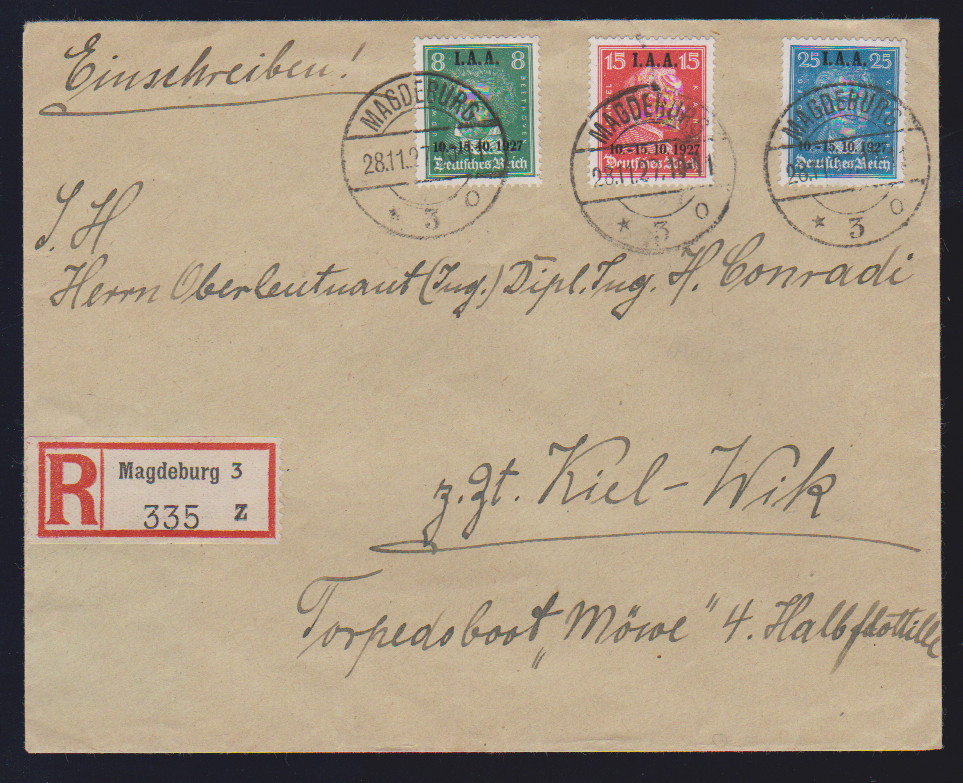 Einschreiben!
8 I.A.A. 8
BEETHOVEN
10.-15.10.1927
Deutsches Reich
15 I.A.A. 15
10.-15.10.1927
Deutsches Reich
25 I.A.A. 25
10.-15.10.1927
Deutsches Reich
MAGDEBURG
28.11.27
* 3 o
MAGDEBURG
28.11.27
* 3 o
MAGDEBURG
* 3 o
S. H
Herrn Oberleutnant (Ing.) Dipl. Ing. H. Conradi
R Magdeburg 3
335 Z
z. Zt. Kiel-Wik
Torpedoboot „Möwe" 4. Halbflottille